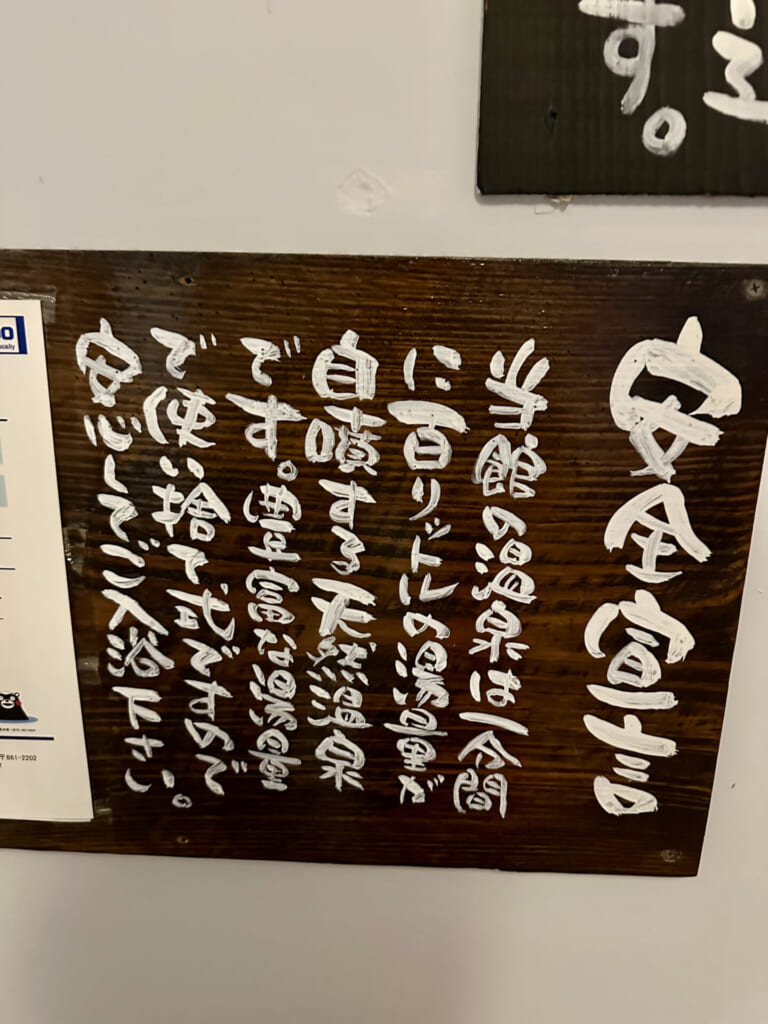 す。
安全宣言
当館の温泉は一分間
に百リットルの湯量が
自噴する天然温泉
です。豊富な湯量
で使い捨て式ですので
安心してご入浴下さい。
〒861-2202